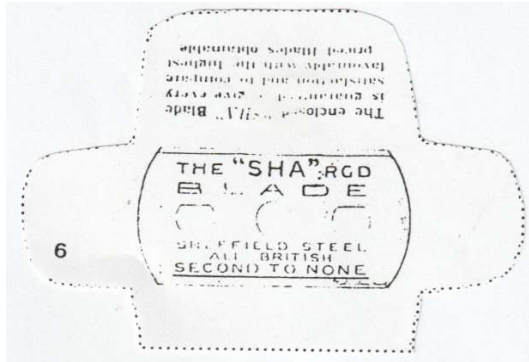 The enclosed "SHA" Blade
is guaranteed to give every
satisfaction and to compare
favourably with the highest
priced Blades obtainable
THE "SHA" RGD
BLADE
SHEFFIELD STEEL
ALL BRITISH
SECOND TO NONE
6